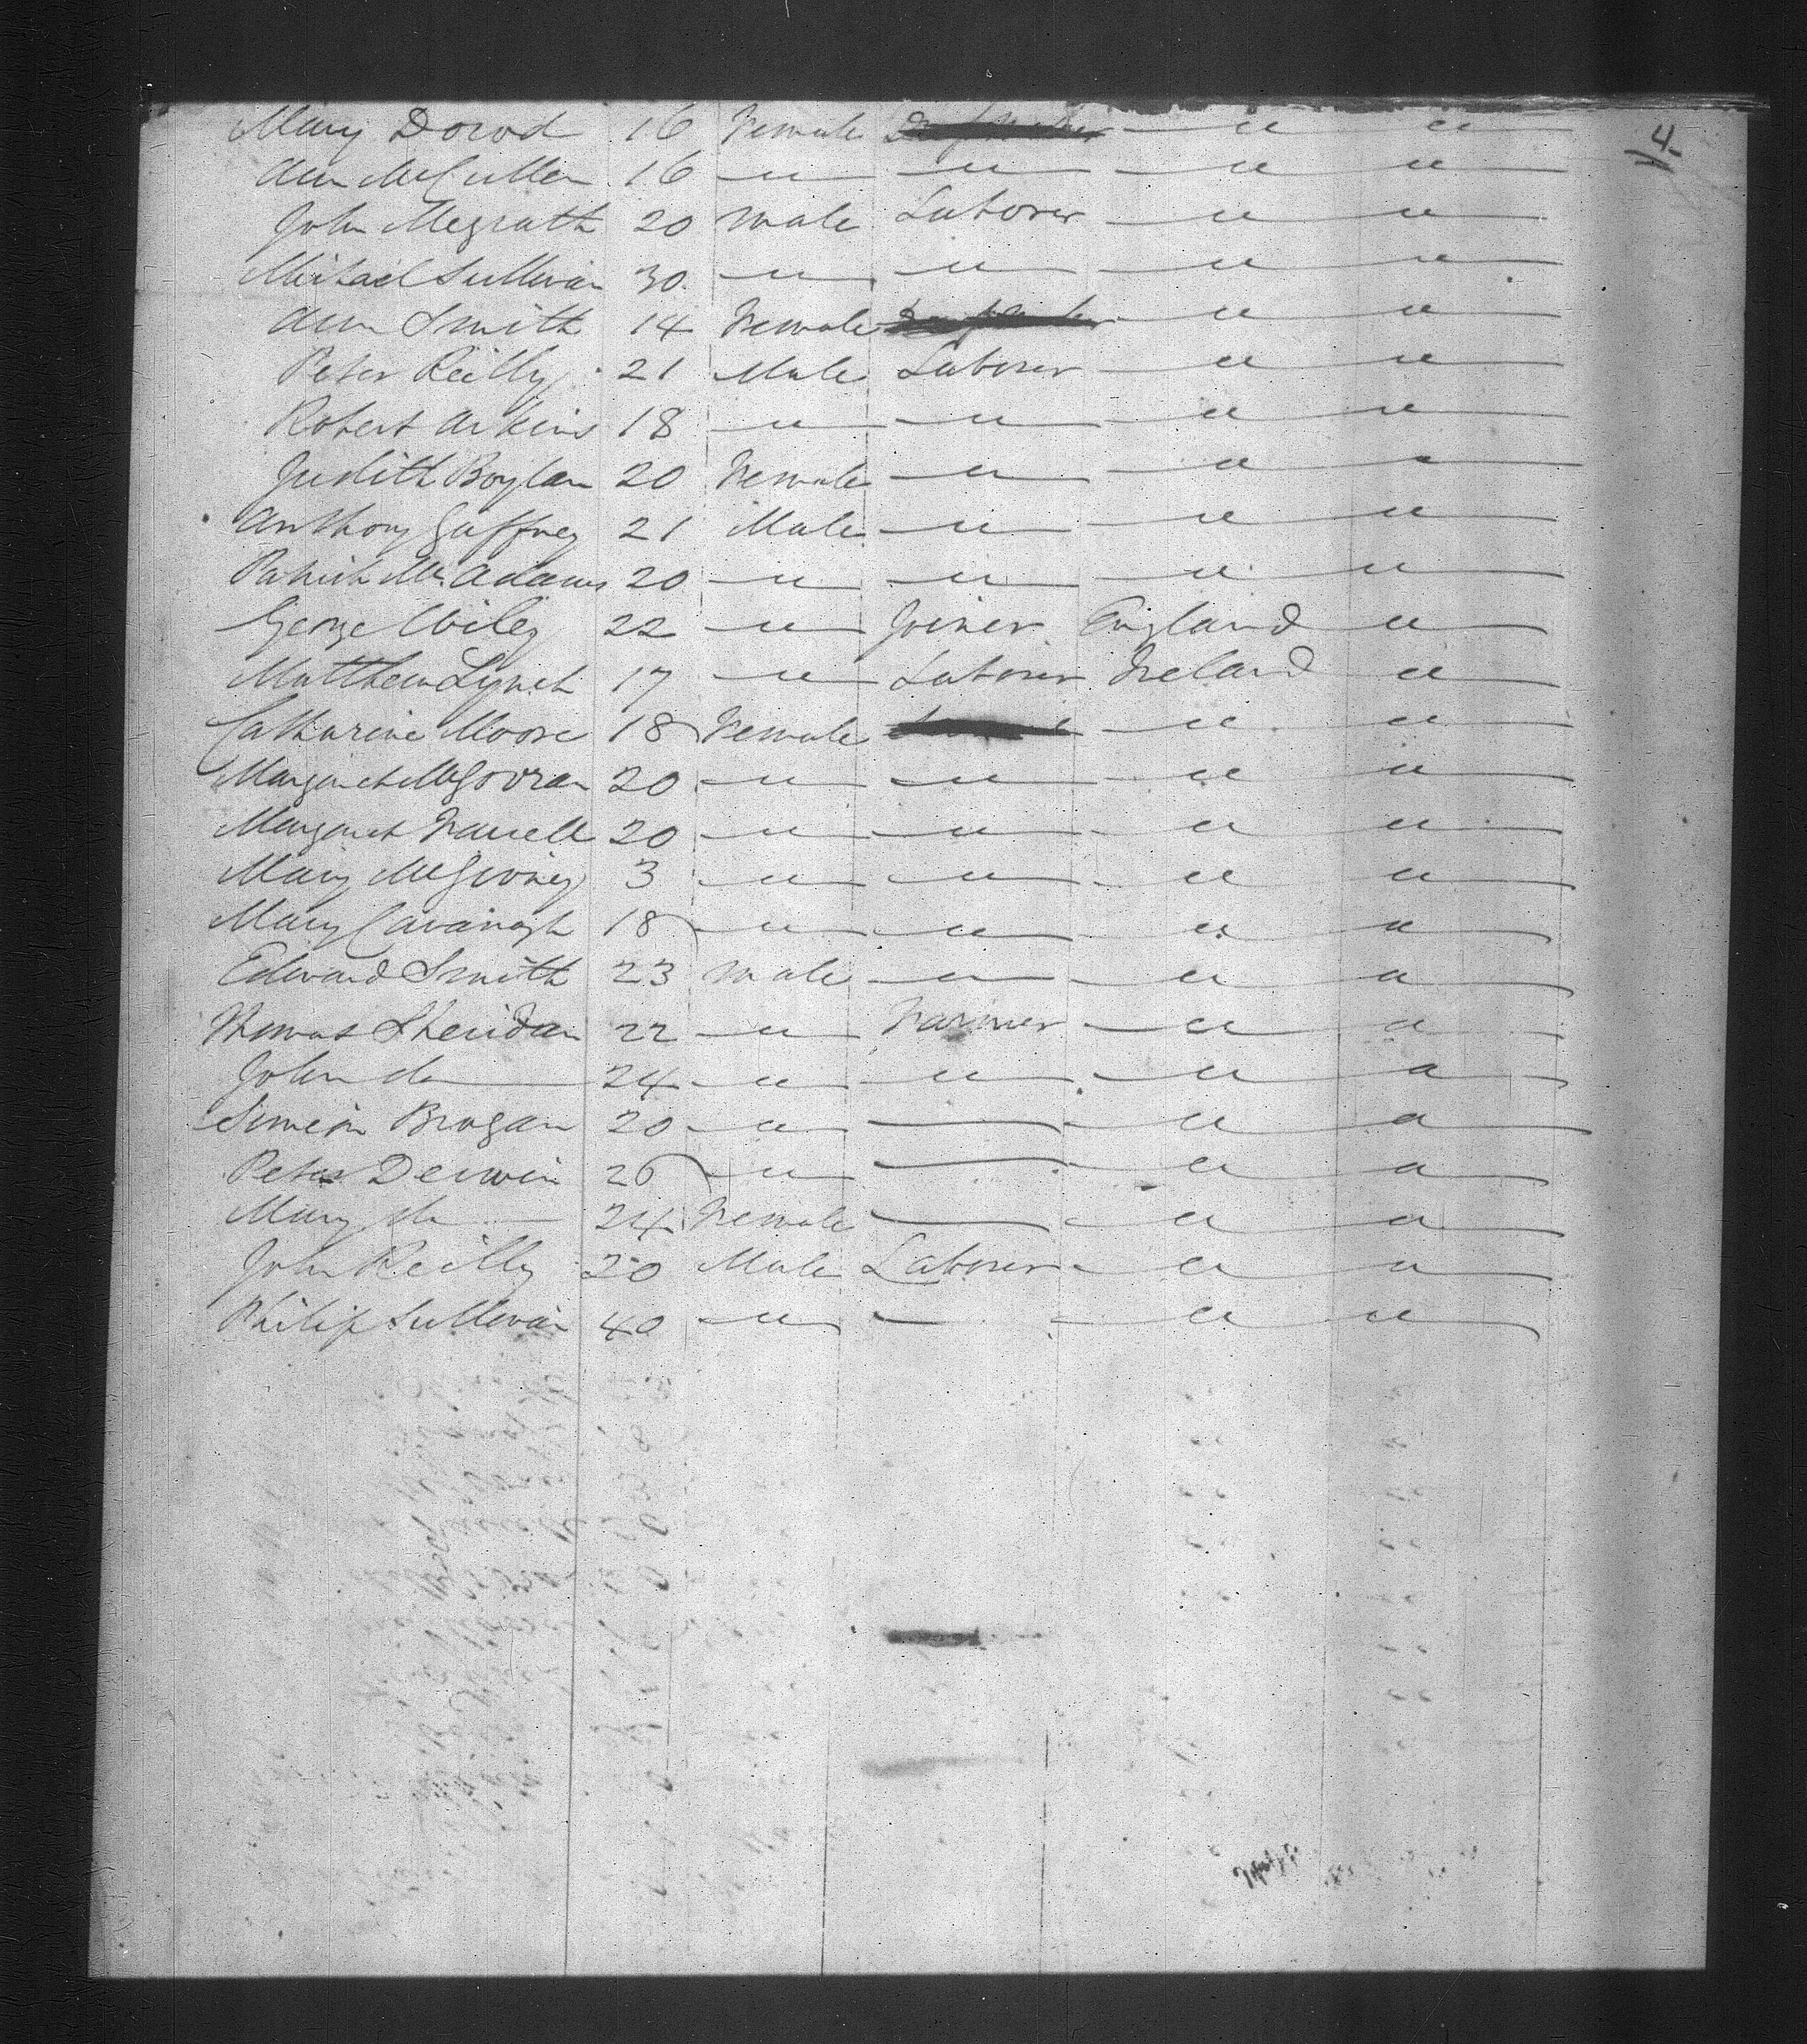 4
Mary Dowd 16 Female — " — " —
Ann McCullen 16 — " — — " — — " — — " —
John Megrath 20 Male Laborer — " — " —
Michael Sullivan 30 — " — — " — — " — " —
Ann Smith 14 Female — " — " —
Peter Reilly 21 Male Laborer — " — " —
Robert Arkins 18 — " — — " — — " — " —
Judith Boylan 20 Female — " — — " — " —
Anthony Gaffney 21 Male — " — — " — " —
Patrick Mc.Adams 20 — " — — " — — " — " —
George Wiley 22 — " — Joiner England — " —
Matthew Lynch 17 — " — Laborer Ireland — " —
Catharine Moore 18 Female — " — " —
Margaret McGovran 20 — " — — " — — " — " —
Margaret Farrell 20 — " — — " — — " — " —
Mary 3 — " — — " — — " — " —
Mary Cavanagh 18 — " — — " — — " — " —
Edward Smith 23 Male — " — — " — " —
Thomas Sheridan 22 — " — Farmer — " — " —
John do — 24 — " — — " — — " — " —
Simeon Brogan 20 — " — — — " — " —
Peter Derwin 26 — " — — — " — " —
Mary do — 24 Female — — " — " —
John Reilly 20 Male Laborer — " — " —
Philip Sullivan 40 — " — — — " — " —